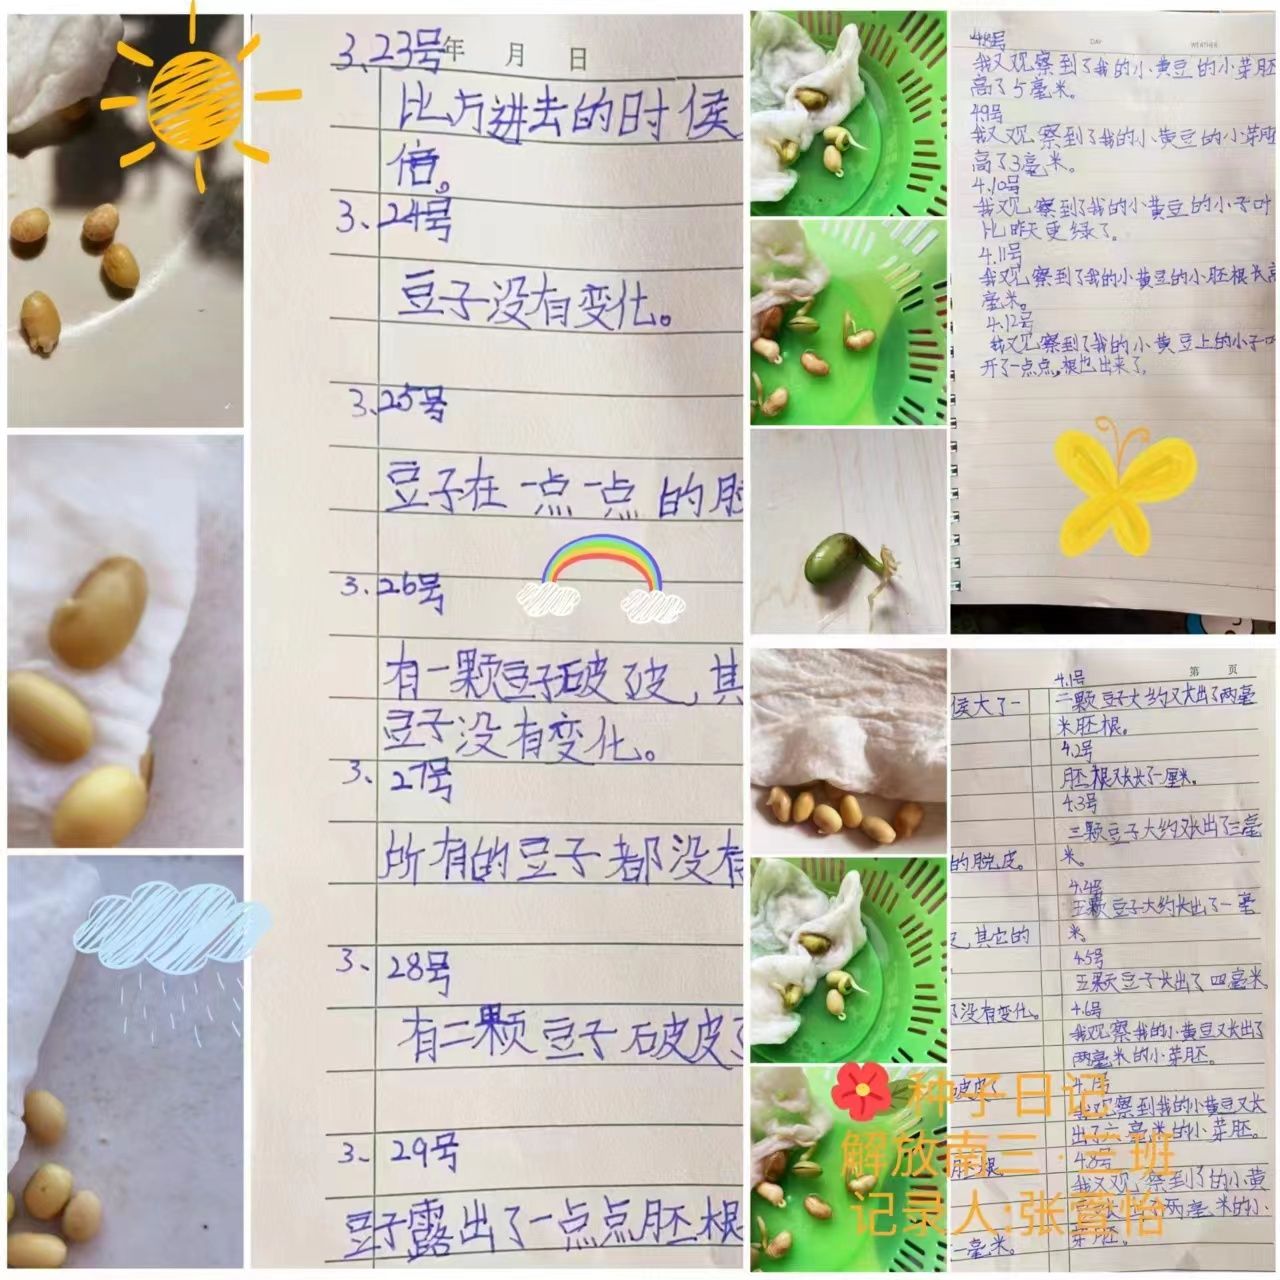 年 月 日
3、23号
比方进去的时侯
倍。
3、24号
豆子没有变化。
3、25号
豆子在一点一点的脱
3、26号
有一颗豆子破了皮,其
豆子没有变化。
3、27号
所有的豆子都没有
3、28号
有二颗豆子破皮了
3、29号
豆子露出了一点点胚根
DAY WEATHER
4.8号
我又观察到了我的小黄豆的小芽胚
高了5毫米。
4.9号
我又观察到了我的小黄豆的小芽胚
高了3毫米。
4.10号
我又观察到了我的小黄豆的小子叶
比昨天更绿了。
4.11号
我又观察到了我的小黄豆的小胚根长高
毫米。
4.12号
我又观察到了我的小黄豆上的小子叶
开了一点点,根也出来了。
侯大了一
的脱皮。
其它的
没有变化。
破皮了
胚根
一毫米。
第 页
4.1号
二颗豆子大约又长出了两毫
米胚根。
4.2号
胚根又长长了一厘米。
4.3号
三颗豆子大约又长出了三毫
米。
4.4号
五颗豆子大约长出了一毫
米。
4.5号
五颗豆子长出了四毫米
4.6号
我观察我的小黄豆又长出了
两毫米的小芽胚。
4.7号
我观察到我的小黄豆又长
出了六毫米的小芽胚。
4.8号
我又观察到了的小黄
两毫米的小
芽胚。
种子日记
解放南三·三班
记录人:张萱怡